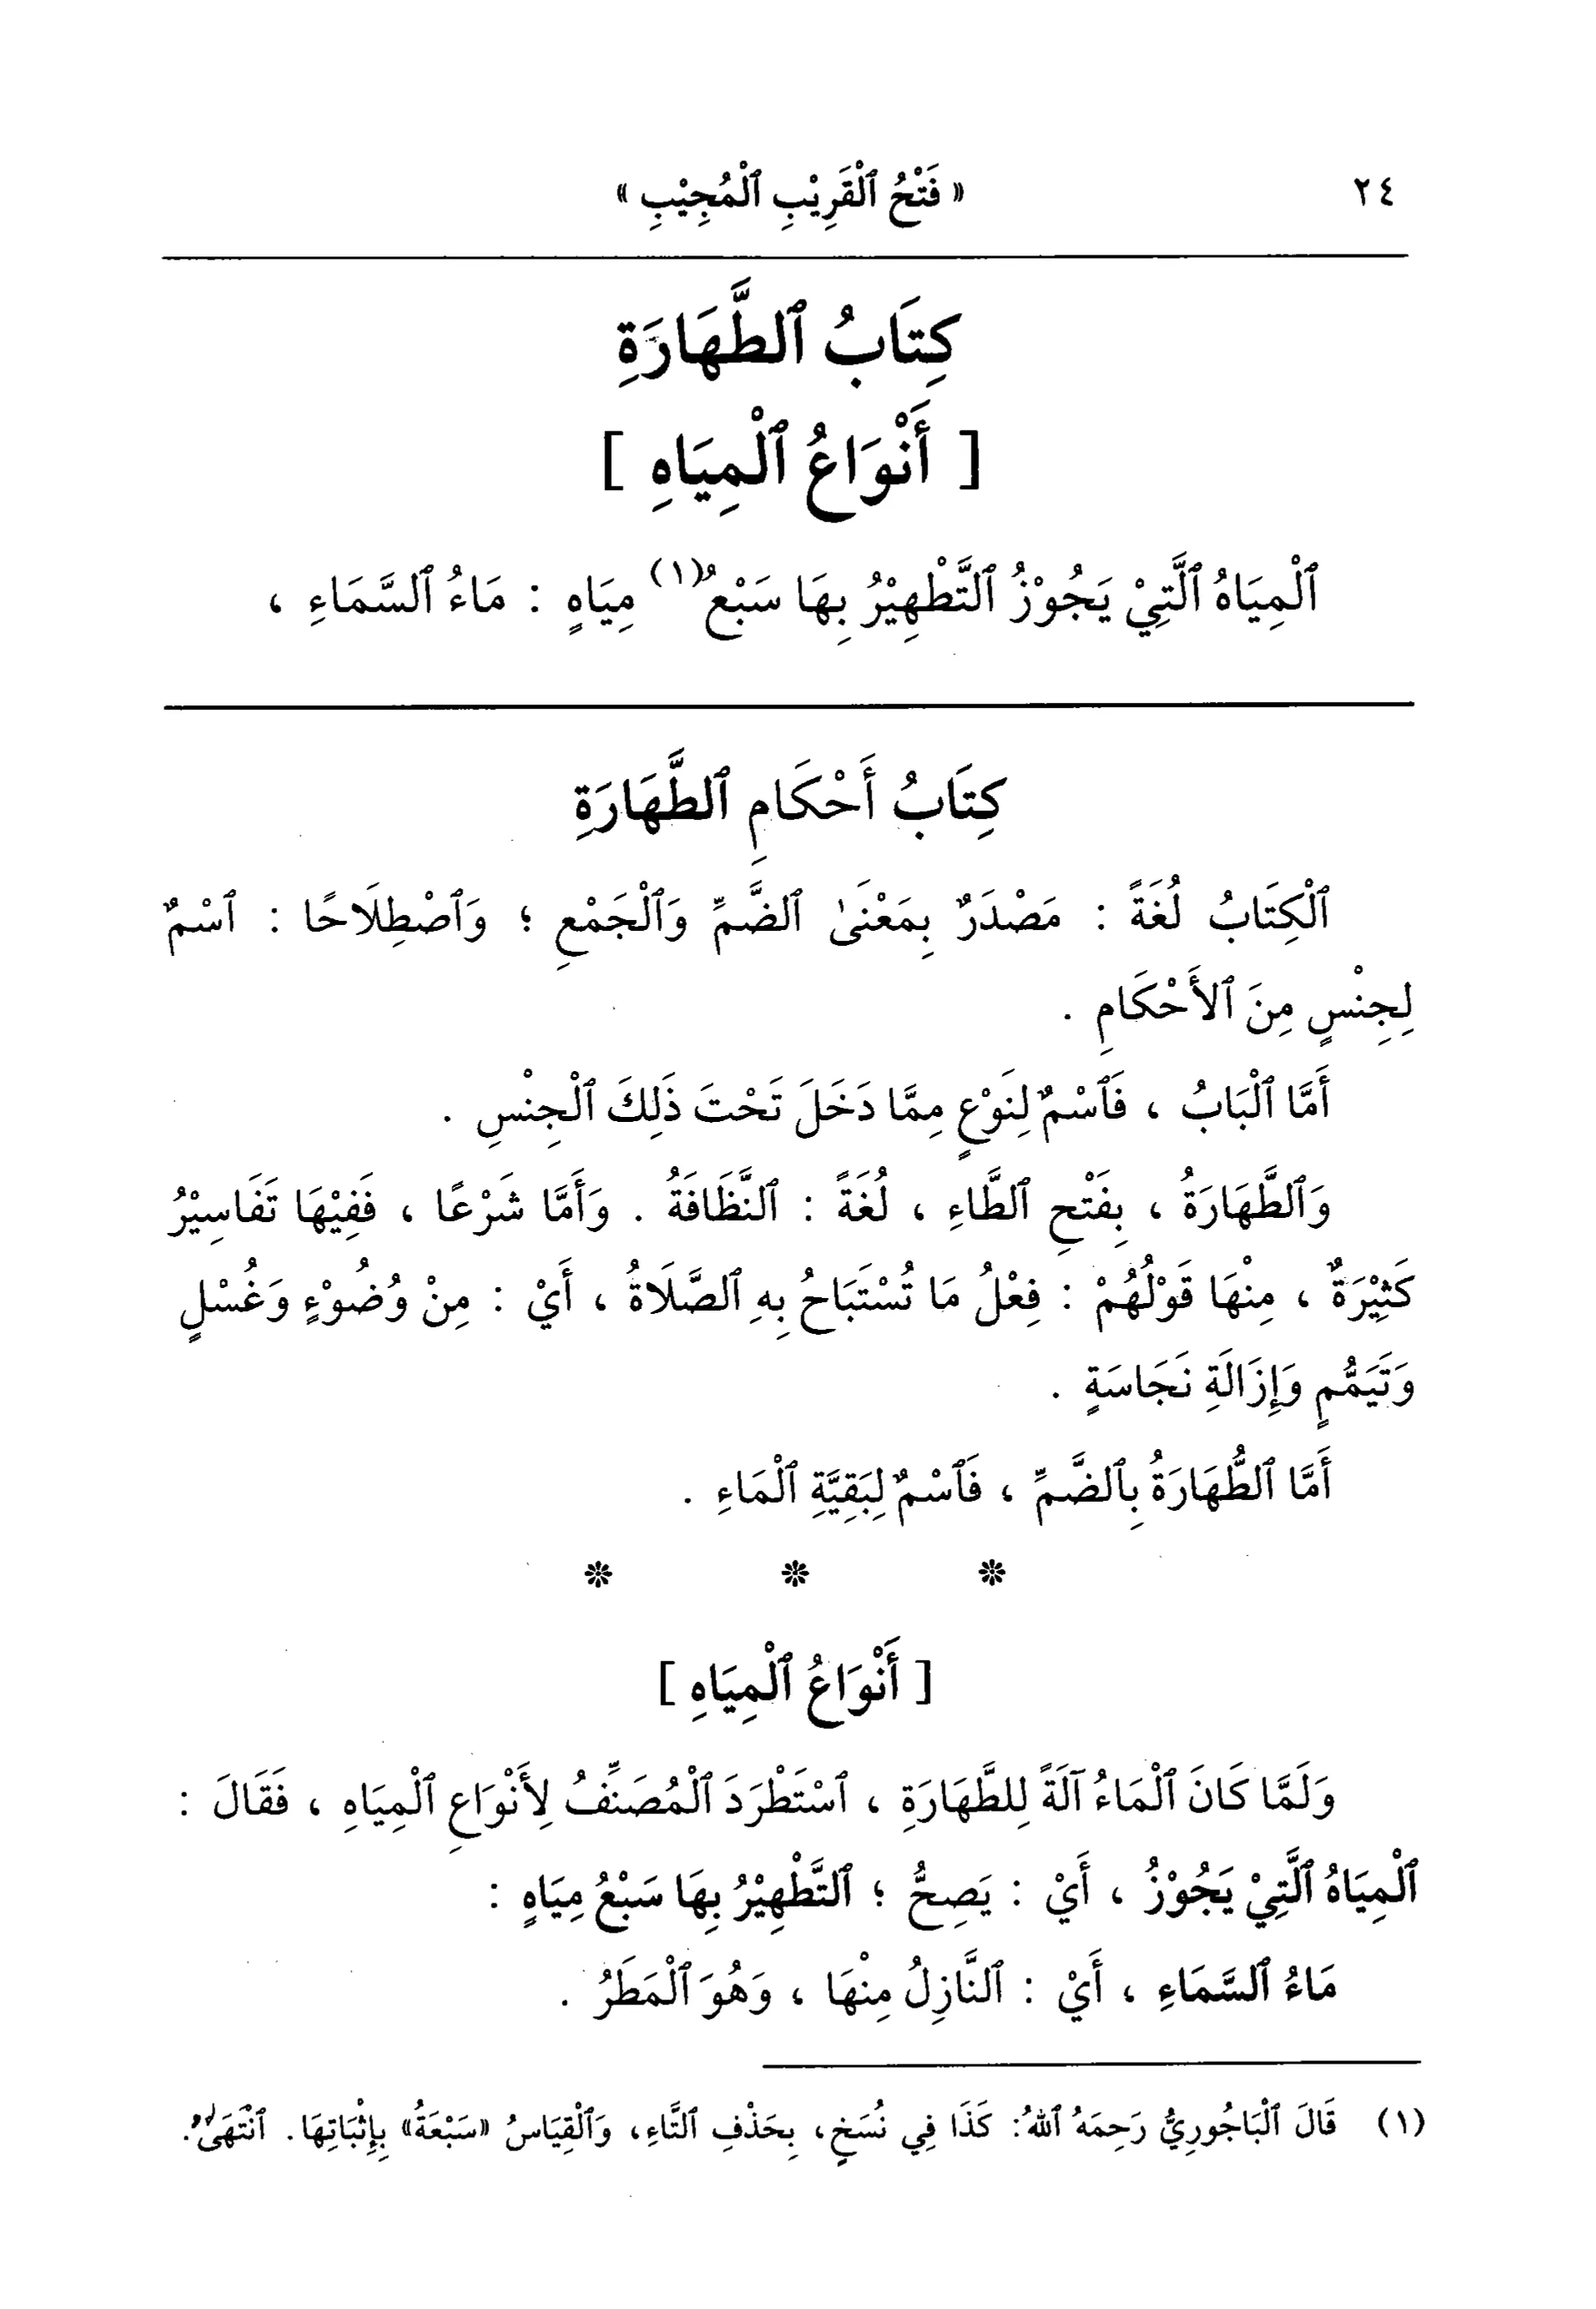 ٢٤
« فَتْحُ ٱلْقَرِيْبِ ٱلْمُجِيْبِ »
كِتَابُ ٱلطَّهَارَةِ
[ أَنْوَاعُ ٱلْمِيَاهِ ]
ٱلْمِيَاهُ ٱلَّتِيْ يَجُوْزُ ٱلتَّطْهِيْرُ بِهَا سَبْعُ(١) مِيَاهٍ : مَاءُ ٱلسَّمَاءِ ،
كِتَابُ أَحْكَامِ ٱلطَّهَارَةِ
ٱلْكِتَابُ لُغَةً : مَصْدَرٌ بِمَعْنَىٰ ٱلضَّمِّ وَٱلْجَمْعِ ؛ وَٱصْطِلَاحًا : ٱسْمٌ
لِجِنْسٍ مِنَ ٱلأَحْكَامِ .
أَمَّا ٱلْبَابُ ، فَٱسْمٌ لِنَوْعٍ مِمَّا دَخَلَ تَحْتَ ذَلِكَ ٱلْجِنْسِ .
وَٱلطَّهَارَةُ ، بِفَتْحِ ٱلطَّاءِ ، لُغَةً : ٱلنَّظَافَةُ . وَأَمَّا شَرْعًا ، فَفِيْهَا تَفَاسِيْرُ
كَثِيْرَةٌ ، مِنْهَا قَوْلُهُمْ : فِعْلُ مَا تُسْتَبَاحُ بِهِ ٱلصَّلَاةُ ، أَيْ : مِنْ وُضُوْءٍ وَغُسْلٍ
وَتَيَمُّمٍ وَإِزَالَةِ نَجَاسَةٍ .
أَمَّا ٱلطُّهَارَةُ بِٱلضَّمِّ ، فَٱسْمٌ لِبَقِيَّةِ ٱلْمَاءِ .
* * *
[ أَنْوَاعُ ٱلْمِيَاهِ ]
وَلَمَّا كَانَ ٱلْمَاءُ آلَةً لِلطَّهَارَةِ ، ٱسْتَطْرَدَ ٱلْمُصَنِّفُ لِأَنْوَاعِ ٱلْمِيَاهِ ، فَقَالَ :
ٱلْمِيَاهُ ٱلَّتِيْ يَجُوْزُ ، أَيْ : يَصِحُّ ؛ ٱلتَّطْهِيْرُ بِهَا سَبْعُ مِيَاهٍ :
مَاءُ ٱلسَّمَاءِ ، أَيْ : ٱلنَّازِلُ مِنْهَا ، وَهُوَ ٱلْمَطَرُ .
(١) قَالَ ٱلْبَاجُورِيُّ رَحِمَهُ ٱللهُ: كَذَا فِي نُسَخٍ، بِحَذْفِ ٱلتَّاءِ، وَٱلْقِيَاسُ «سَبْعَةُ» بِإِثْبَاتِهَا. ٱنْتَهَىٰ.